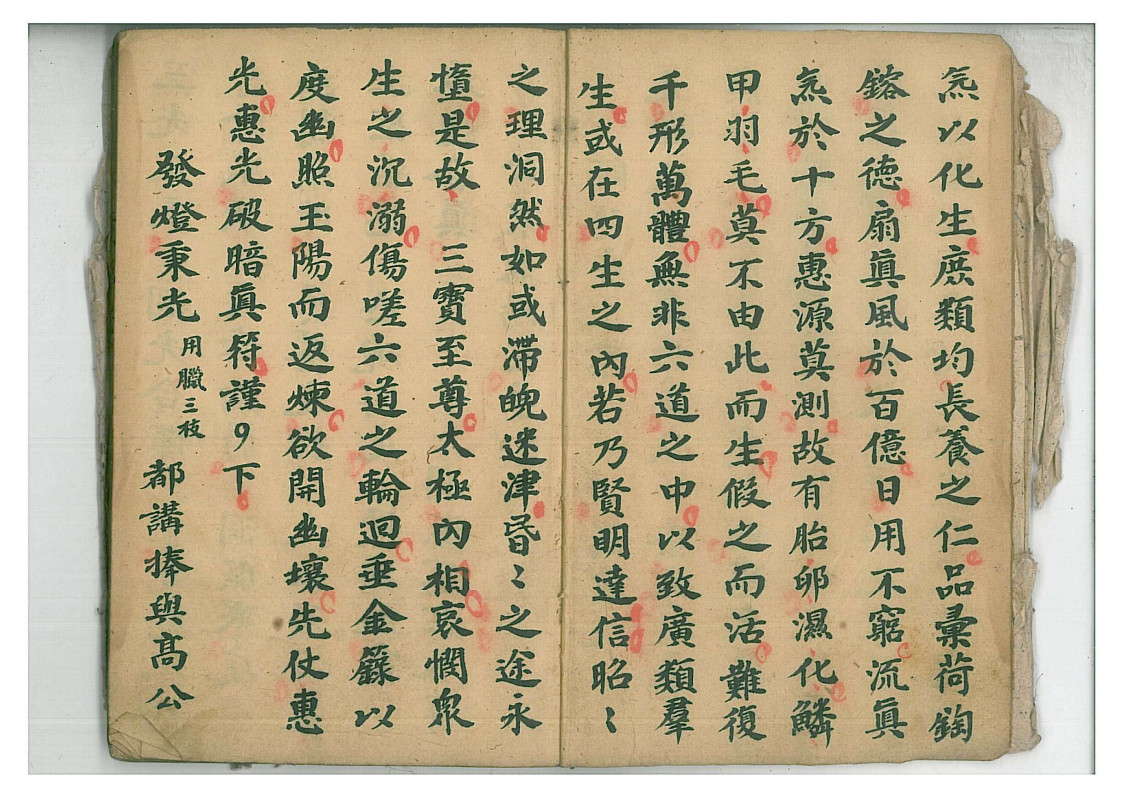 炁以化生庶類均長養之仁品彙荷鋾
鎔之德扇真風於百億日用不窮流真
炁於十方惠源莫測故有胎卵濕化鱗
甲羽毛莫不由此而生假之而活難復
千形萬體無非六道之中以致廣類羣
生或在四生之內若乃賢明達信昭〻
之理洞然如或滯魄迷津昬〻之途永
憶是故 三寶至尊太極內相哀憫眾
生之沉溺傷嗟六道之輪迴垂金籙以
度幽照玉陽而返煉欲開幽壤先仗惠
光惠光破暗真符謹9下
發燈秉光 用臘三枝 都講捧與高公